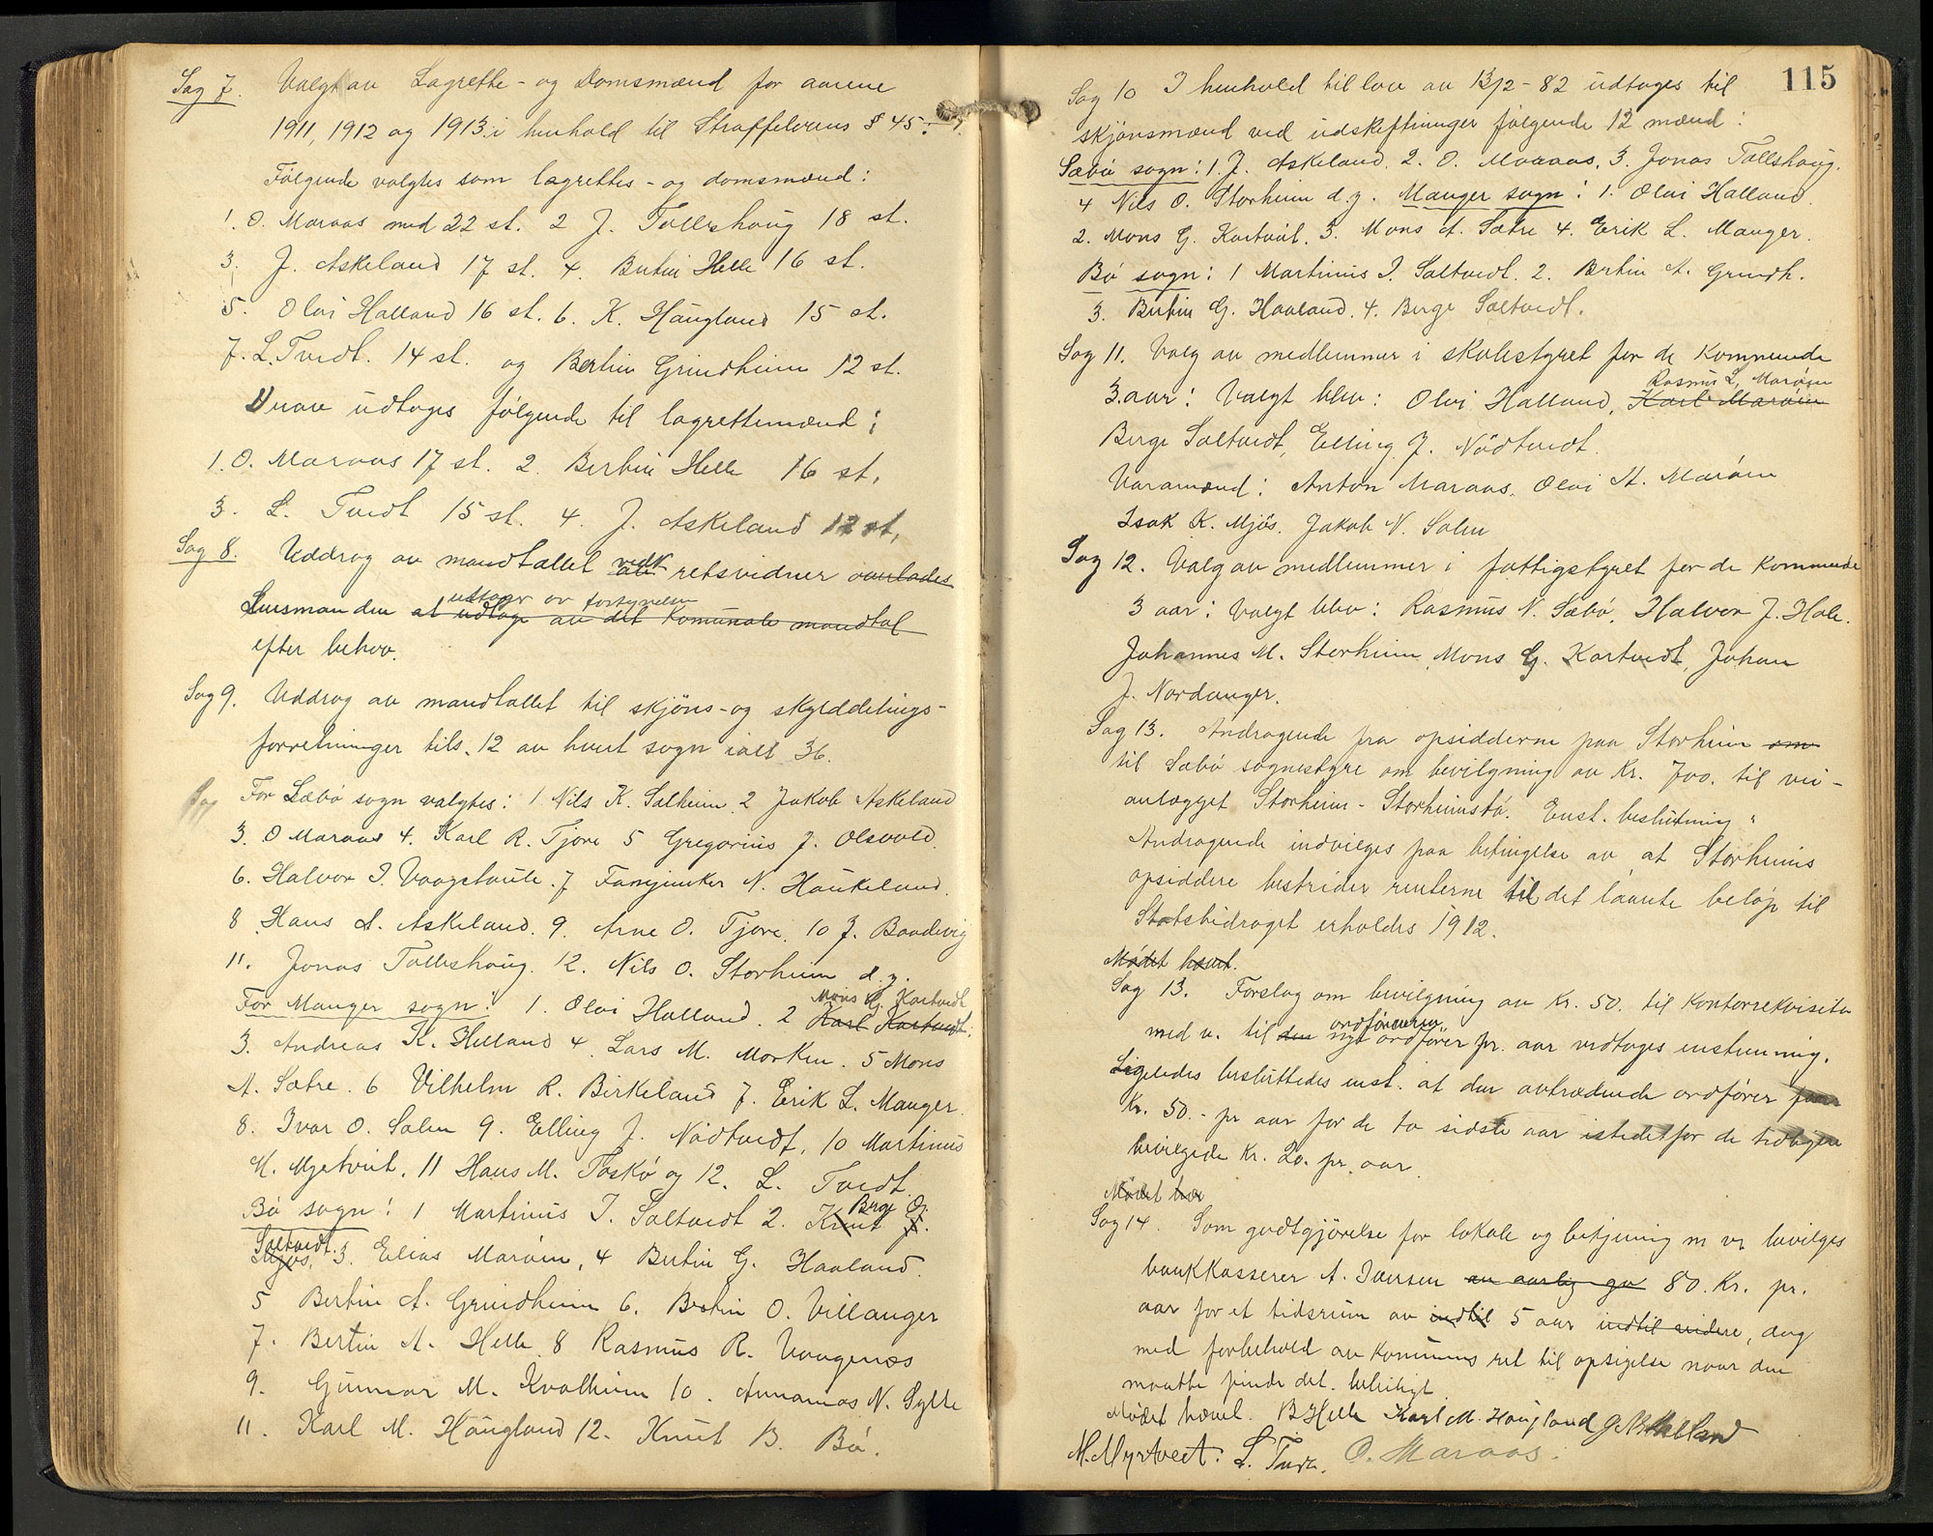 Sag 7. Valg av Lagrette- og Domsmænd for aarene
1911, 1912 og 1913 i henhold til Straffelovens § 45.
Følgende valgtes som lagrettes- og domsmænd:
1. O. Maraas med 22 st. 2 J. Tolleshaug 18 st.
3. J. Askeland 17 st. 4. Bertin Helle 16 st.
5. Olai Halland 16 st. 6. K. Haugland 15 st.
7. L. Tvedt. 14 st. og Bertin Grindheim 12 st.
Derav udtoges følgende til lagrettemænd:
1. O. Maraas 17 st. 2. Bertin Helle 16 st.
3. L. Tvedt 15 st. 4. J. Askeland 12 st.
Sag 8. Uddrag av mandtallet vedk retsvidner overlades
udtoges av bestyrelsen
Lensmanden at udtage av det Komunale mandtal
efter behov.
Sag 9. Uddrag av mandtallet til skjöns- og skylddelings-
forretninger tils. 12 av hvert sogn ialt 36.
Sag
For Sæbö sogn valgtes: 1 Nils K. Solheim 2 Jakob Askeland
3. O Maraas 4. Karl R. Tjore 5 Gregorius J. Olsvold.
6. Halvor I. Vaagstaule. 7 Fanejunker N. Haukeland.
8 Hans A. Askeland. 9. Arne O. Tjore. 10 J. Boudevig
11. Jonas Tolleshaug. 12. Nils O. Storheim d.y.
Mons G. Kartveit
For Manger sogn: 1. Olai Halland. 2 Karl Kartveidt.
3. Andreas K. Helland 4. Lars M. Morken. 5 Mons
A. Sætre. 6 Vilhelm R. Birkeland 7. Erik L. Manger.
8. Ivar O. Solem 9. Elling J. Nödtvedt, 10 Martinus
M. Myrtveit. 11 Hans M. Toskö og 12. L. Tvedt.
Berge O.
Bö sogn: 1 Martinus I. Saltvedt 2. Knut J.
Saltvedt.
Mjös. 3. Elias Maröen, 4 Bertin G. Haaland.
5 Bertin A. Grindheim 6. Bertin O. Villanger
7. Bertin A. Helle 8 Rasmus R. Vaagenes
9. Gunnar M. Kvalheim 10. Annanias N. Sylte
11. Karl M. Haugland 12. Knut B. Bö.
115
Sag 10 I henhold til lov av 13/2-82 udtoges til
skjönsmænd ved udskiftninger følgende 12 mænd:
Sæbö sogn: 1. J. Askeland. 2. O. Maraas. 3. Jonas Tolleshaug.
4 Nils O. Storheim d.y. Manger sogn: 1. Olai Halland.
2. Mons G. Kartveit. 3. Mons A. Sætre 4. Erik L. Manger.
Bö sogn: 1 Martinus I. Saltvedt. 2. Bertin A. Grindh.
3. Bertin G. Haaland. 4. Berge Saltvedt.
Sag 11. Valg av medlemmer i skolestyret for de Kommende
Rasmus L. Maröen
3. aar: Valgt blev: Olai Halland, Karl Maröen
Berge Saltvedt, Elling J. Nödtvedt.
Varamænd: Anton Maraas. Olai A. Maröen
Isak K. Mjös. Jakob N. Solem
Sag 12. Valg av medlemmer i fattigstyret for de Kommende
3 aar: Valgt blev: Rasmus N. Sæbö. Halvor J. Hole.
Johannes M. Storheim, Mons G. Kartveidt, Johan
J. Nordanger.
Sag 13. Andragende fra opsidderne paa Storheim om
til Sæbö sognestyre om bevilgning av Kr. 700. til vei-
anlægget Storheim - Storheimstö. Enst. beslutning:
Andragende indvilges paa betingelse av at Storheims
opsiddere bestrider renterne til det laante belöp til
Statsbidraget erholdes 1912.
Mödet hævet.
Sag 13. Forslag om bevilgning av Kr. 50. til Kontorrekvisita
ordföreren
med v. til den nye ordförer pr. aar vedtoges enstemmig.
Ligeledes besluttedes enst. at den avtrædende ordförer faar
Kr. 50.- pr aar for de to sidste aar istedetfor de tidligere
bevilgede Kr. 20. pr. aar.
Mödet hæv
Sag 14. Som godtgjörelse for lokale og betjening m v. bevilges
bankkasserer A. Iversen en aarlig gv 80. Kr. pr.
aar for et tidsrum av indtil 5 aar indtil videre, dog
med forbehold av Komunens ret til opsigelse naar den
maatte finde det beleiligt.
Mödet hævet. B Helle Karl M. Haugland
M. Myrtveit. L. Tvedt. O. Maraas.